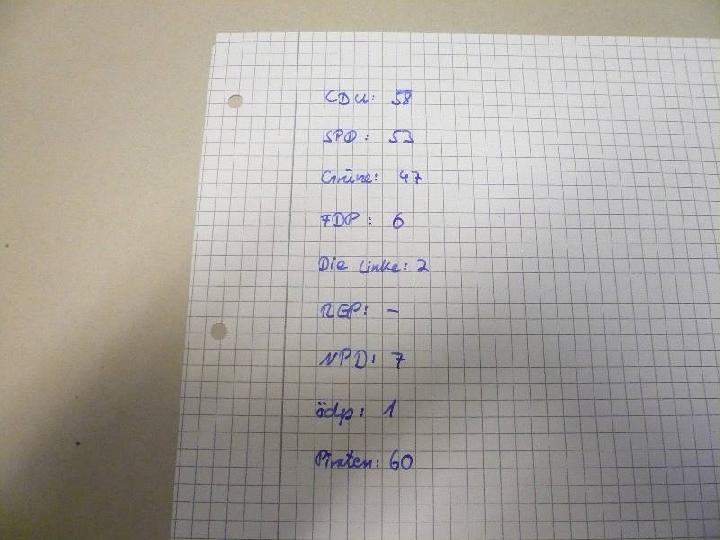 CDU: 58
SPD: 53
Grüne: 47
FDP: 6
Die Linke: 2
REP: -
NPD: 7
ödp: 1
Piraten: 60